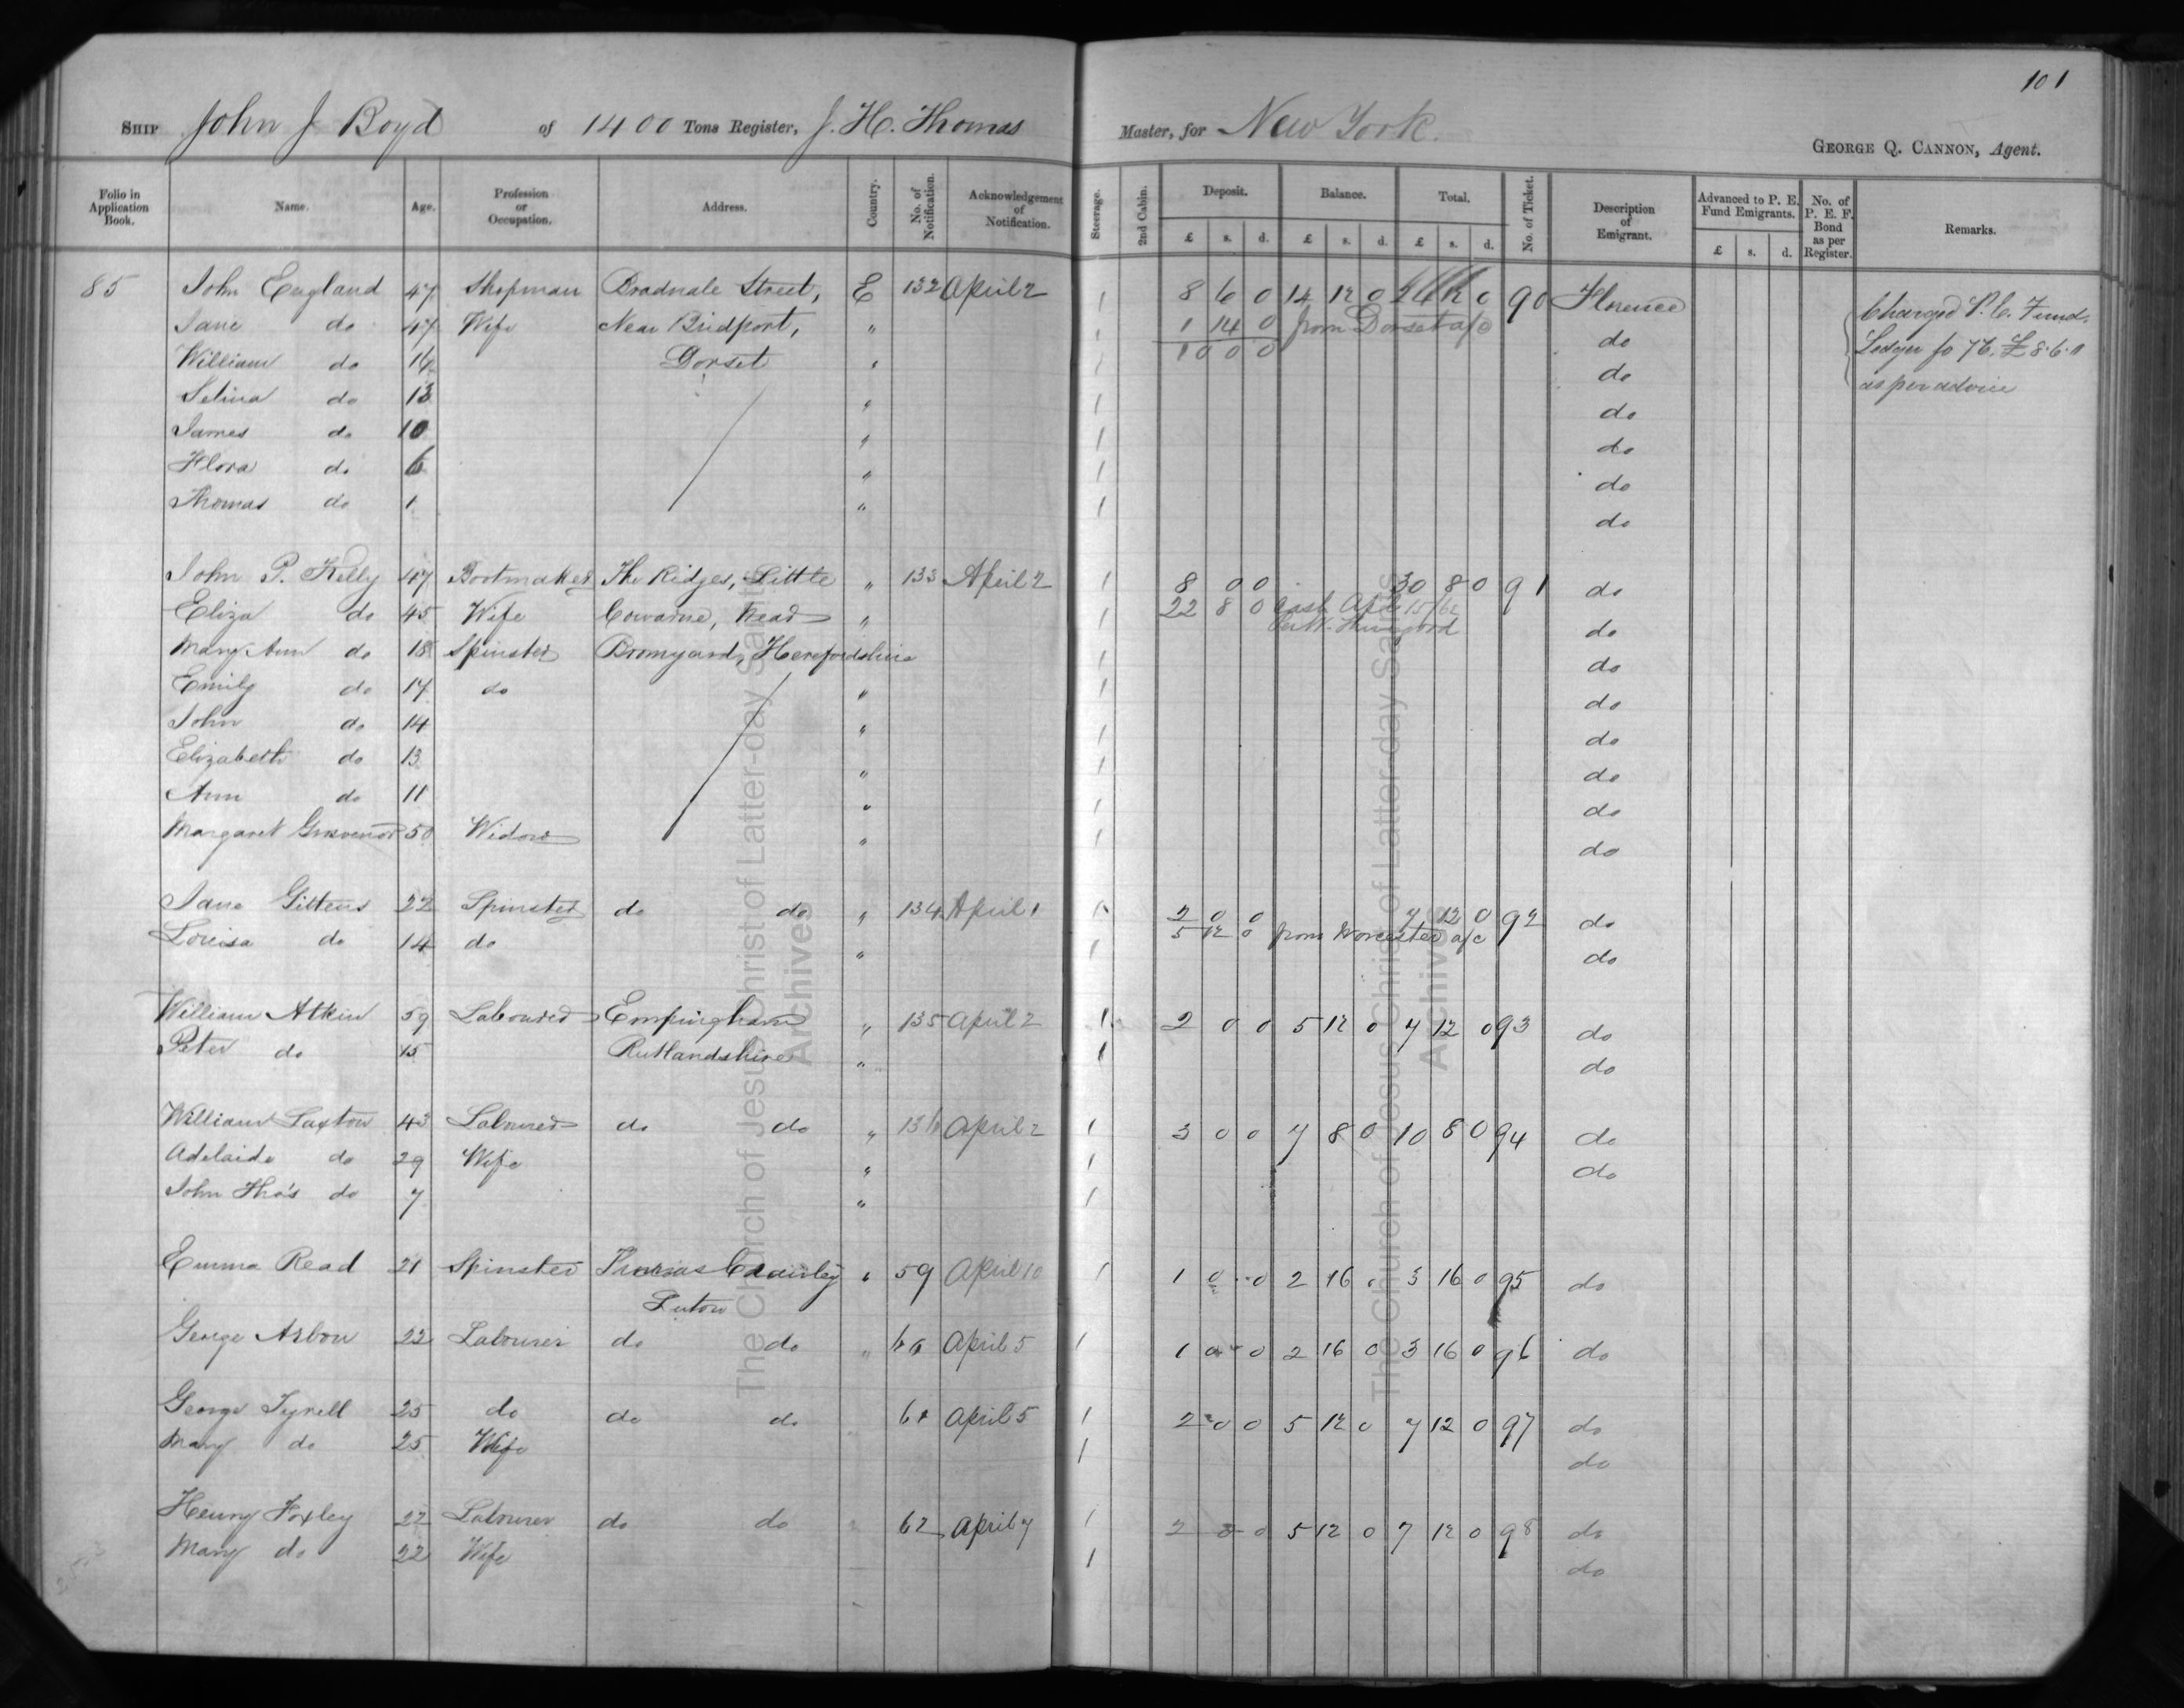 101
SHIP John J Boyd of 1400 Tons Register, J. H. Thomas Master, for New York. GEORGE Q. CANNON, Agent.
Folio in Application Book. Name. Age. Profession or Occupation. Address. Country. No. of Notification. Acknowledgement of Notification. Steerage. 2nd Cabin. Deposit. £ s. d. Balance. £ s. d. Total. £ s. d. No. of Ticket. Description of Emigrant. Advanced to P. E. Fund Emigrants. £ s. d. No. of P. E. F. Bond as per Register. Remarks.
85 John England 47 Shopman Bradnale Street, E 132 April 2 1 8 6 0 14 12 0 0 90 Florence Charged P. E. Fund.
Jane do 47 Wife Near Bridport, " 1 1 14 0 from Dorset a/c do Ledger fo 76. £8.6.0
William do 16 Dorset " 1 10 0 0 do as per advice
Selina do 13 " 1 do
James do 10 " 1 do
Flora do 6 " 1 do
Thomas do 1 " 1 do
John P. Kelly 47 Bootmaker The Ridges, Little " 133 April 2 1 8 0 0 30 8 0 91 do
Eliza do 45 Wife Cowarne, Near " 1 22 8 0 Cash Apl 15/62 do
Mary Ann do 18 Spinster Bromyard, Herefordshire 1 do
Emily do 17 do " 1 do
John do 14 " 1 do
Elizabeth do 13 " 1 do
Ann do 11 " 1 do
Margaret Grosvenor 50 Widow " 1 do
Jane Gittens 22 Spinster do do " 134 April 1 1 2 0 0 7 12 0 92 do
Louisa do 14 do " 1 5 12 0 from Worcester a/c do
William Atkin 59 Labourer Empingham " 135 April 2 1 2 0 0 5 12 0 7 12 0 93 do
Peter do 15 Rutlandshire " 1 do
William Saxton 43 Labourer do do " 136 April 2 1 3 0 0 7 8 0 10 8 0 94 do
Adelaide do 29 Wife " 1 do
John Tho's do 7 " 1
Emma Read 21 Spinster Thomas Crawley " 59 April 10 1 1 0 0 2 16 0 3 16 0 95 do
Luton
George Arbon 22 Labourer do do " 60 April 5 1 1 0 0 2 16 0 3 16 0 96 do
George Tyrell 25 do do do 61 April 5 1 2 0 0 5 12 0 7 12 0 97 do
Mary do 25 Wife 1 do
Henry Foxley 22 Labourer do do 62 April 7 1 2 0 0 5 12 0 7 12 0 98 do
Mary do 22 Wife 1 do
The Church of Jesus Christ of Latter-day Saints
Archives
The Church of Jesus Christ of Latter-day Saints
Archives